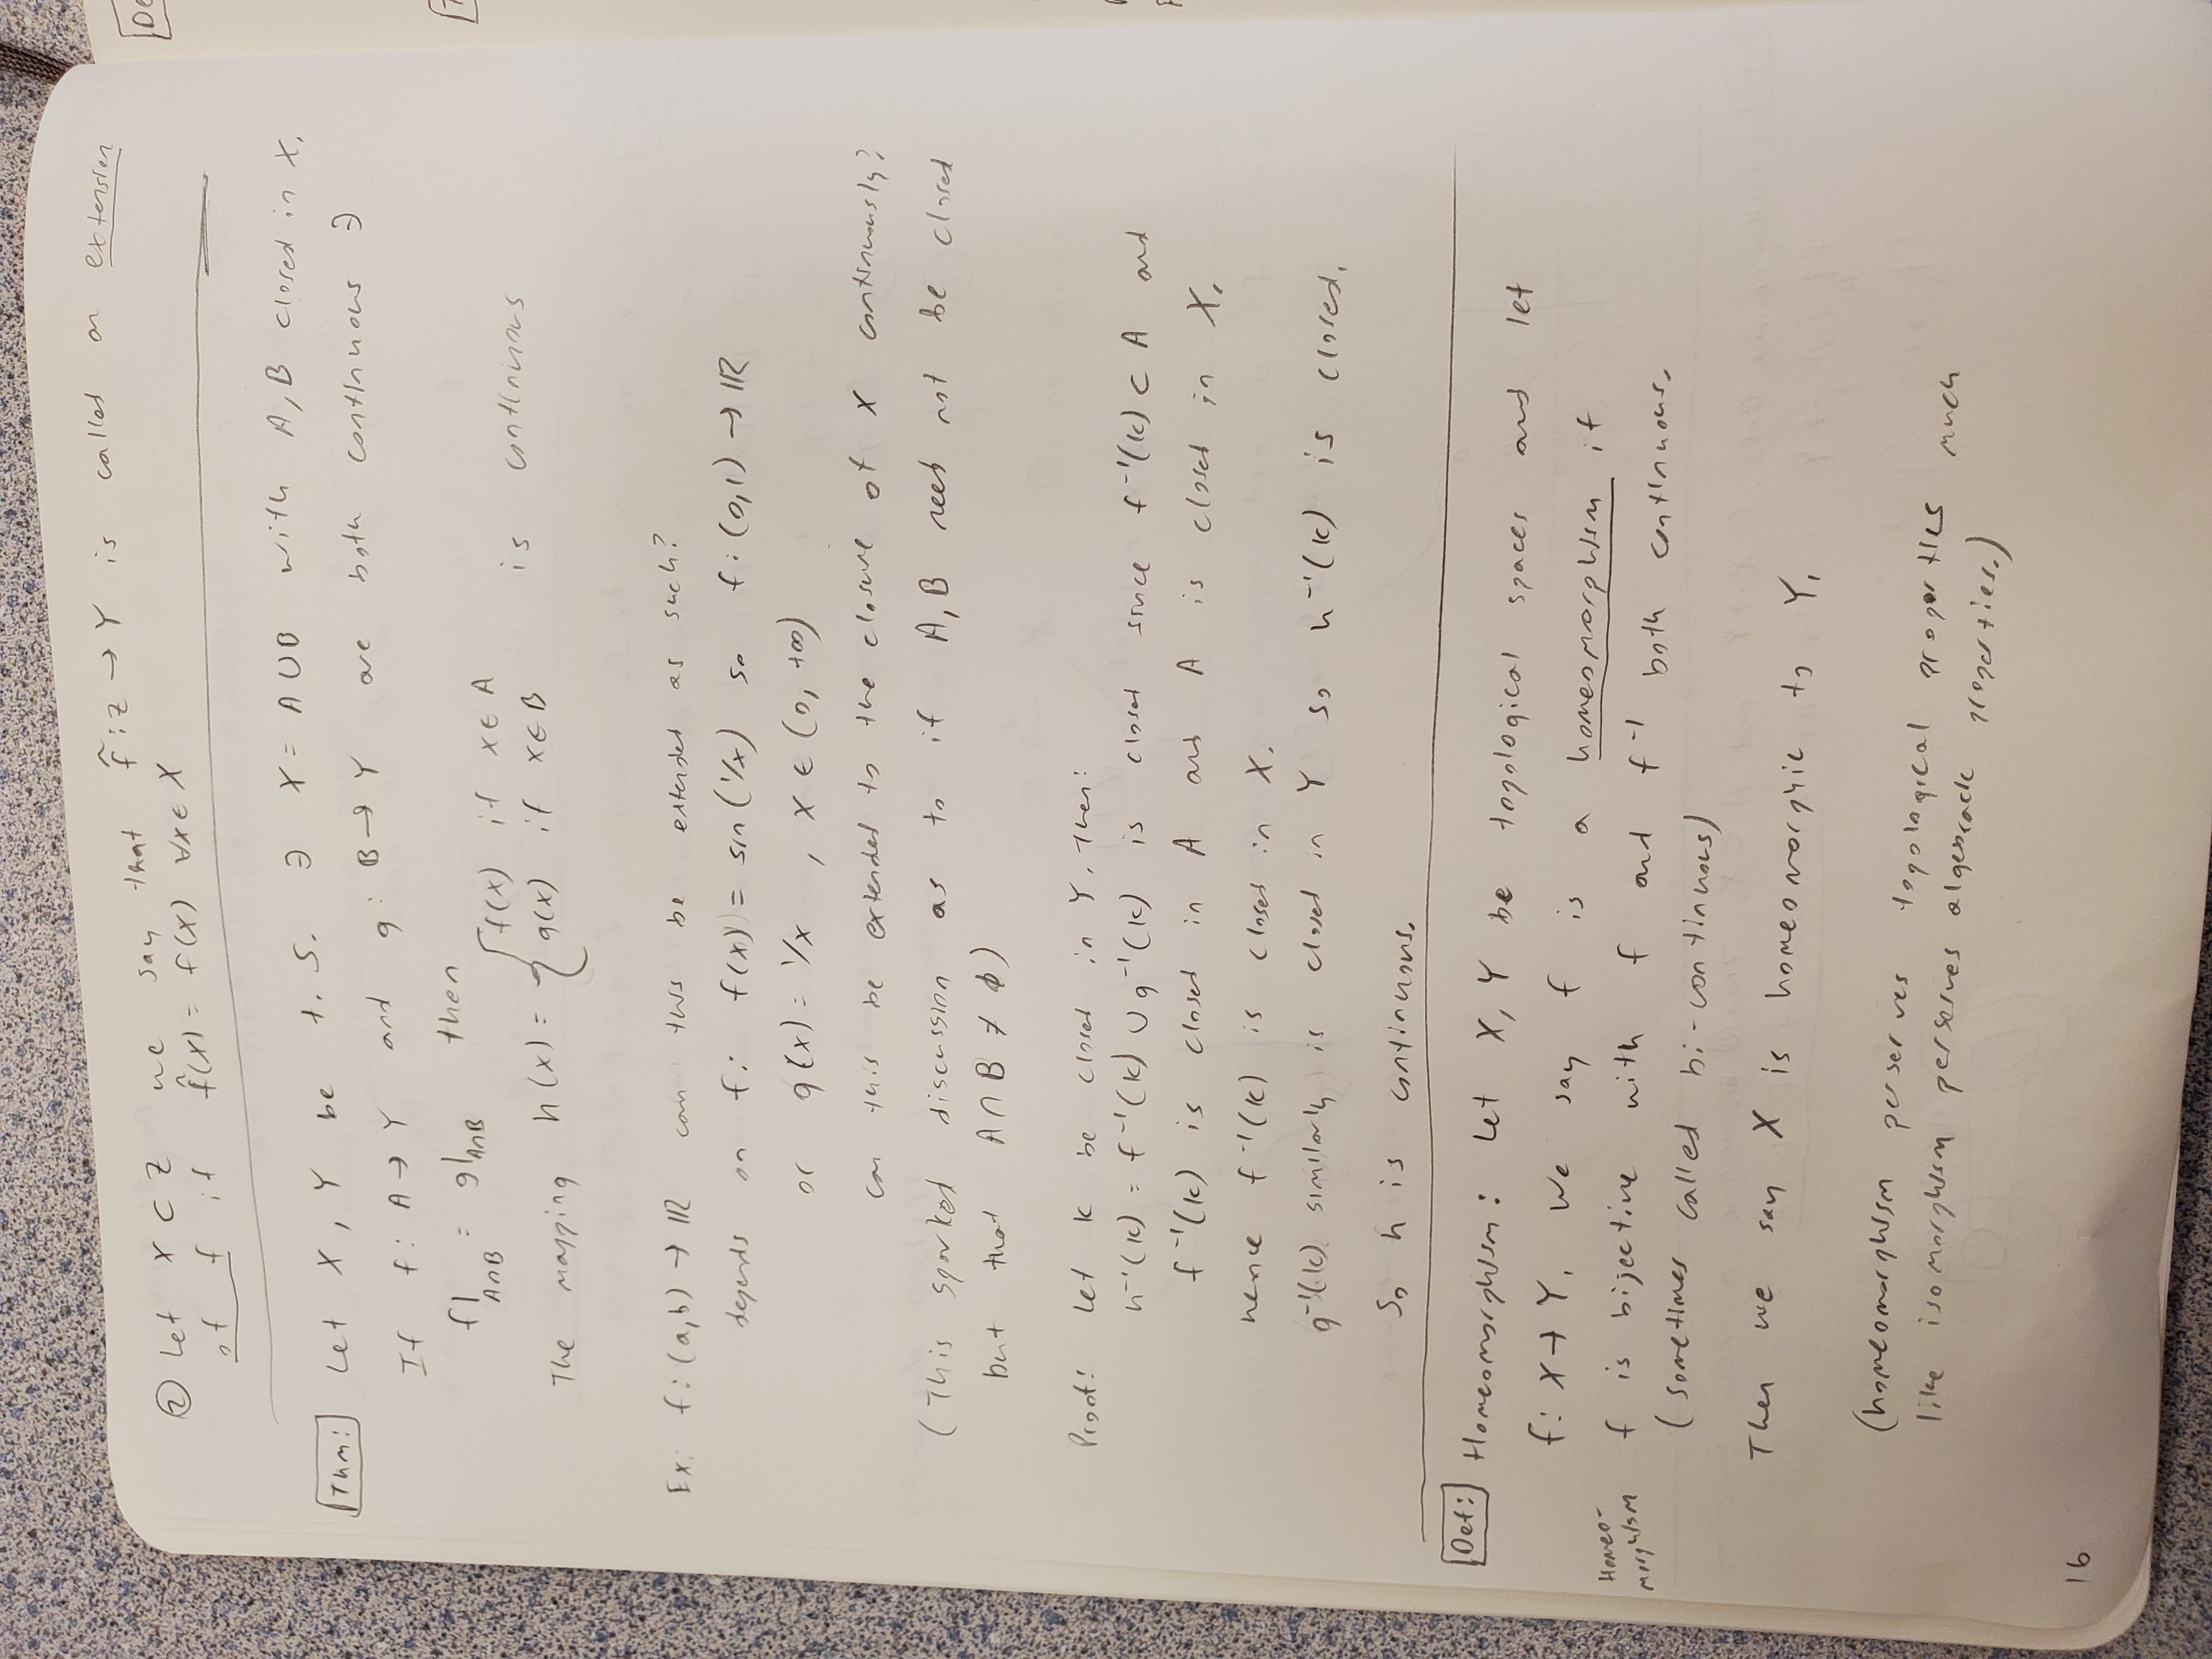 ② Let X ⊂ Z we say that f̃ : Z → Y is called an extension
of f if f̃(x) = f(x) ∀x ∈ X
Thm: Let X, Y be t. S. ∋ X = A ∪ B with A, B closed in X.
If f: A → Y and g: B → Y are both continuous ∋
f|A∩B = g|A∩B then
The mapping h(x) = { f(x) if x ∈ A
g(x) if x ∈ B is continuous
Ex: f: (a,b) → ℝ can this be extended as such?
depends on f: f(x) = sin(1/x) so f: (0,1) → ℝ
or g(x) = 1/x , x ∈ (0, +∞)
can this be extended to the closure of X continuously?
(This sparked discussion as to if A, B need not be closed
but that A ∩ B ≠ ∅)
Proof: Let K be closed in Y. Then:
h⁻¹(K) = f⁻¹(K) ∪ g⁻¹(K) is closed since f⁻¹(K) ⊂ A and
f⁻¹(K) is closed in A and A is closed in X,
hence f⁻¹(K) is closed in X.
g⁻¹(K) similarly is closed in Y so h⁻¹(K) is closed.
So h is continuous.
Def: Homeomorphism: Let X, Y be topological spaces and let
f: X → Y. We say f is a homeomorphism if
Homeo-
morphism
f is bijective with f and f⁻¹ both continuous.
(sometimes called bi-continuous)
Then we say X is homeomorphic to Y.
(homeomorphism perserves topological properties much
like isomorphism perserves algebraic properties.)
16